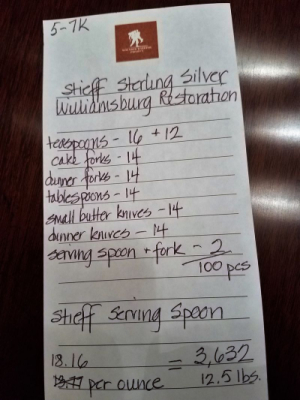 5-7K
Stieff Sterling Silver
Williamsburg Restoration
teaspoons - 16 + 12
cake forks - 14
dinner forks - 14
tablespoons - 14
small butter knives - 14
dinner knives - 14
serving spoon + fork - 2
100 pcs
Stieff Serving Spoon
18.16 = 3,632
per ounce 12.5 lbs.